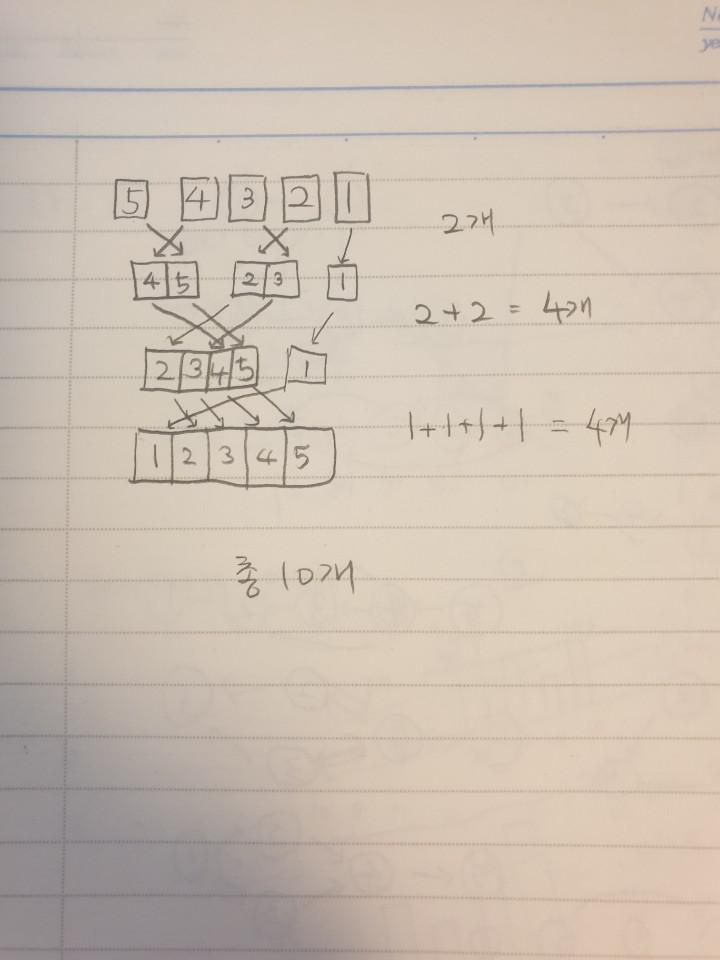 5 4 3 2 1
2개
4 5 2 3 1
2 + 2 = 4개
2 3 4 5 1
1 + 1 + 1 + 1 = 4개
1 2 3 4 5
총 10개